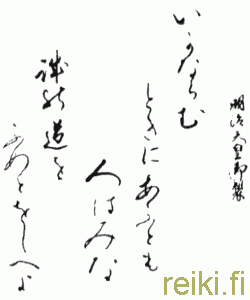 明治天皇御製
いかならむ
ときにあふとも
人はみな
誠の道を
ふめとをしへよ
reiki.fi